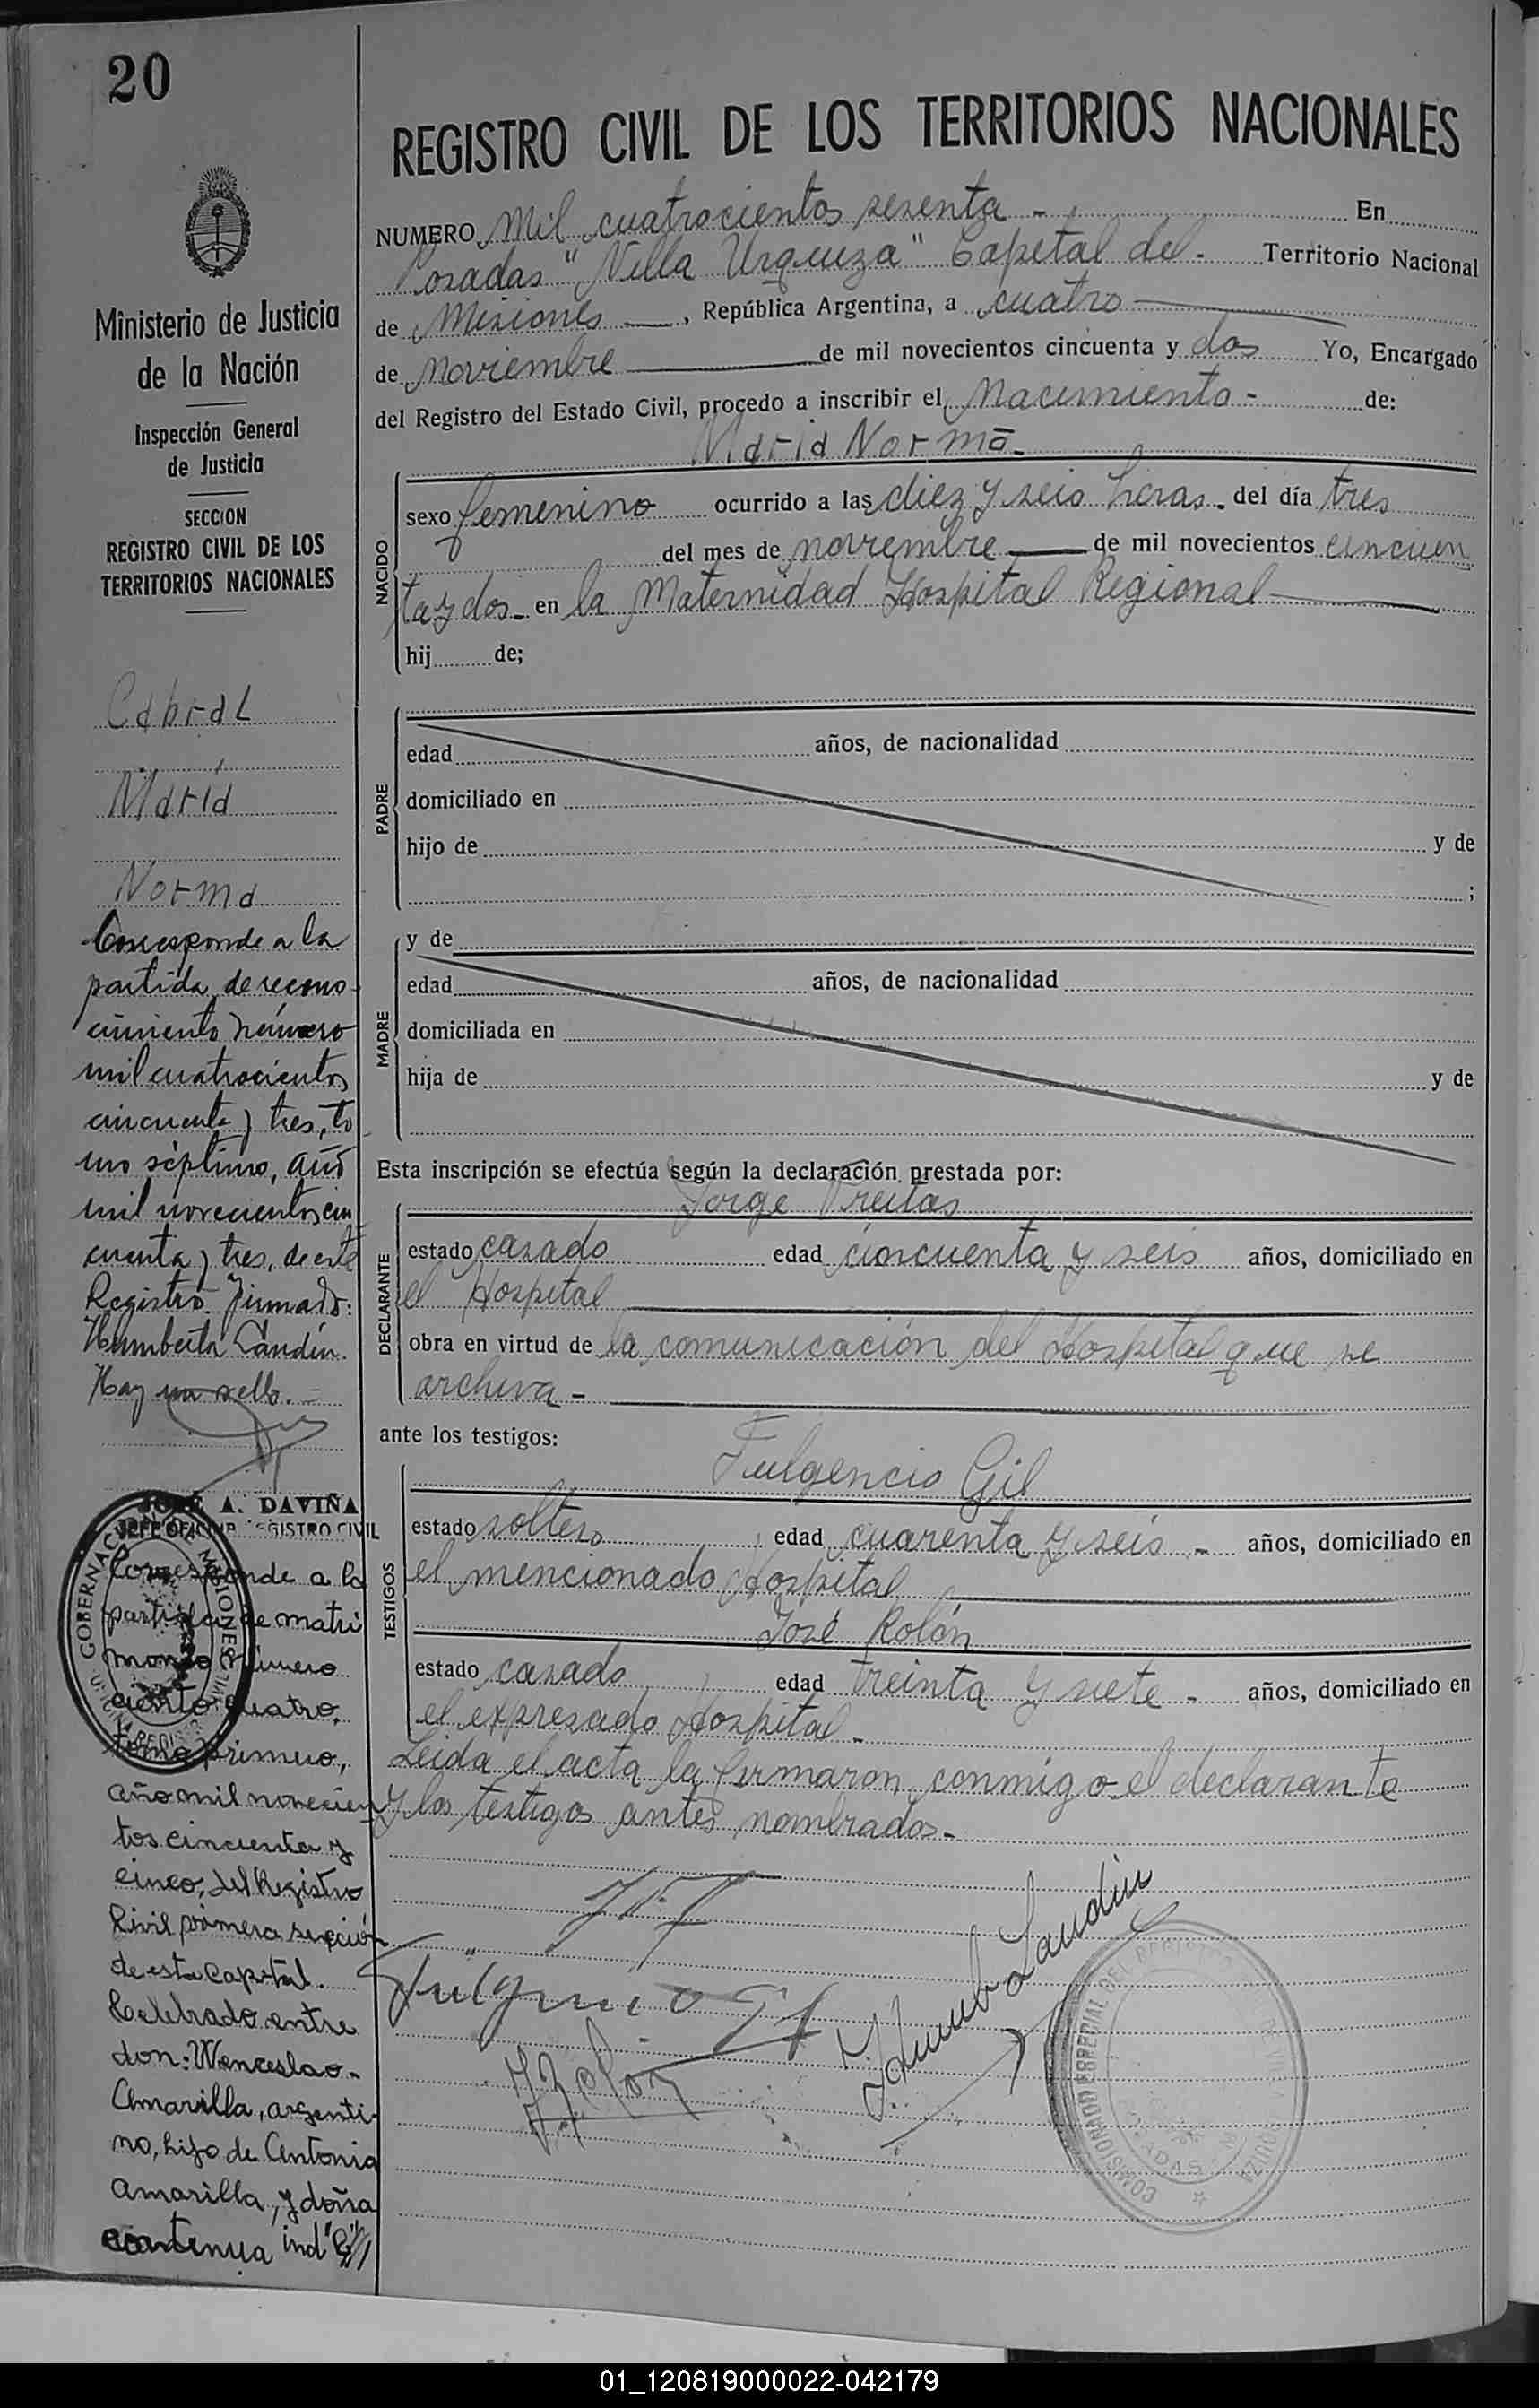 20
Ministerio de Justicia
de la Nación
Inspección General
de Justicia
SECCION
REGISTRO CIVIL DE LOS
TERRITORIOS NACIONALES
Cabral
María
Norma
Corresponde a la
partida de recono-
cimiento número
mil cuatrocientos
cincuenta y tres, to
mo séptimo, año
mil novecientos cin
cuenta y tres, de este
Registro. Firmado:
Humberto Landín.
Hay un sello.-
JOSÉ A. DAVIÑA
JEFE OFICINA REGISTRO CIVIL
Corresponde a la
partida de matri
monio número
ciento cuatro,
tomo primero,
año mil novecien
tos cincuenta y
cinco, del Registro
Civil primera sección
de esta Capital.
Celebrado entre
don: Wenceslao
Amarilla, argenti-
no, hijo de Antonia
Amarilla, y doña
continua ind
REGISTRO CIVIL DE LOS TERRITORIOS NACIONALES
NUMERO Mil cuatrocientos sesenta - En
Posadas "Villa Urquiza" Capital del - Territorio Nacional
de Misiones —, República Argentina, a cuatro —
de noviembre — de mil novecientos cincuenta y dos Yo, Encargado
del Registro del Estado Civil, procedo a inscribir el Nacimiento - de:
María Norma -
NACIDO
sexo femenino ocurrido a las diez y seis horas - del día tres
del mes de noviembre — de mil novecientos cincuen
ta y dos - en la Maternidad Hospital Regional —
hij de;
PADRE
edad años, de nacionalidad
domiciliado en
hijo de y de
;
MADRE
y de
edad años, de nacionalidad
domiciliada en
hija de y de
Esta inscripción se efectúa según la declaración prestada por:
Jorge Freitas
DECLARANTE
estado casado edad cincuenta y seis años, domiciliado en
el Hospital —
obra en virtud de la comunicación del Hospital que se
archiva - —
ante los testigos:
Fulgencio Gil
TESTIGOS
estado soltero edad cuarenta y seis - años, domiciliado en
el mencionado Hospital —
José Rolón
estado casado edad treinta y siete - años, domiciliado en
el expresado Hospital -
Leida el acta la firmaron conmigo el declarante
y los testigos antes nombrados -
Fulgencio Gil
J Rolón
Humb Landín
01_120819000022-042179